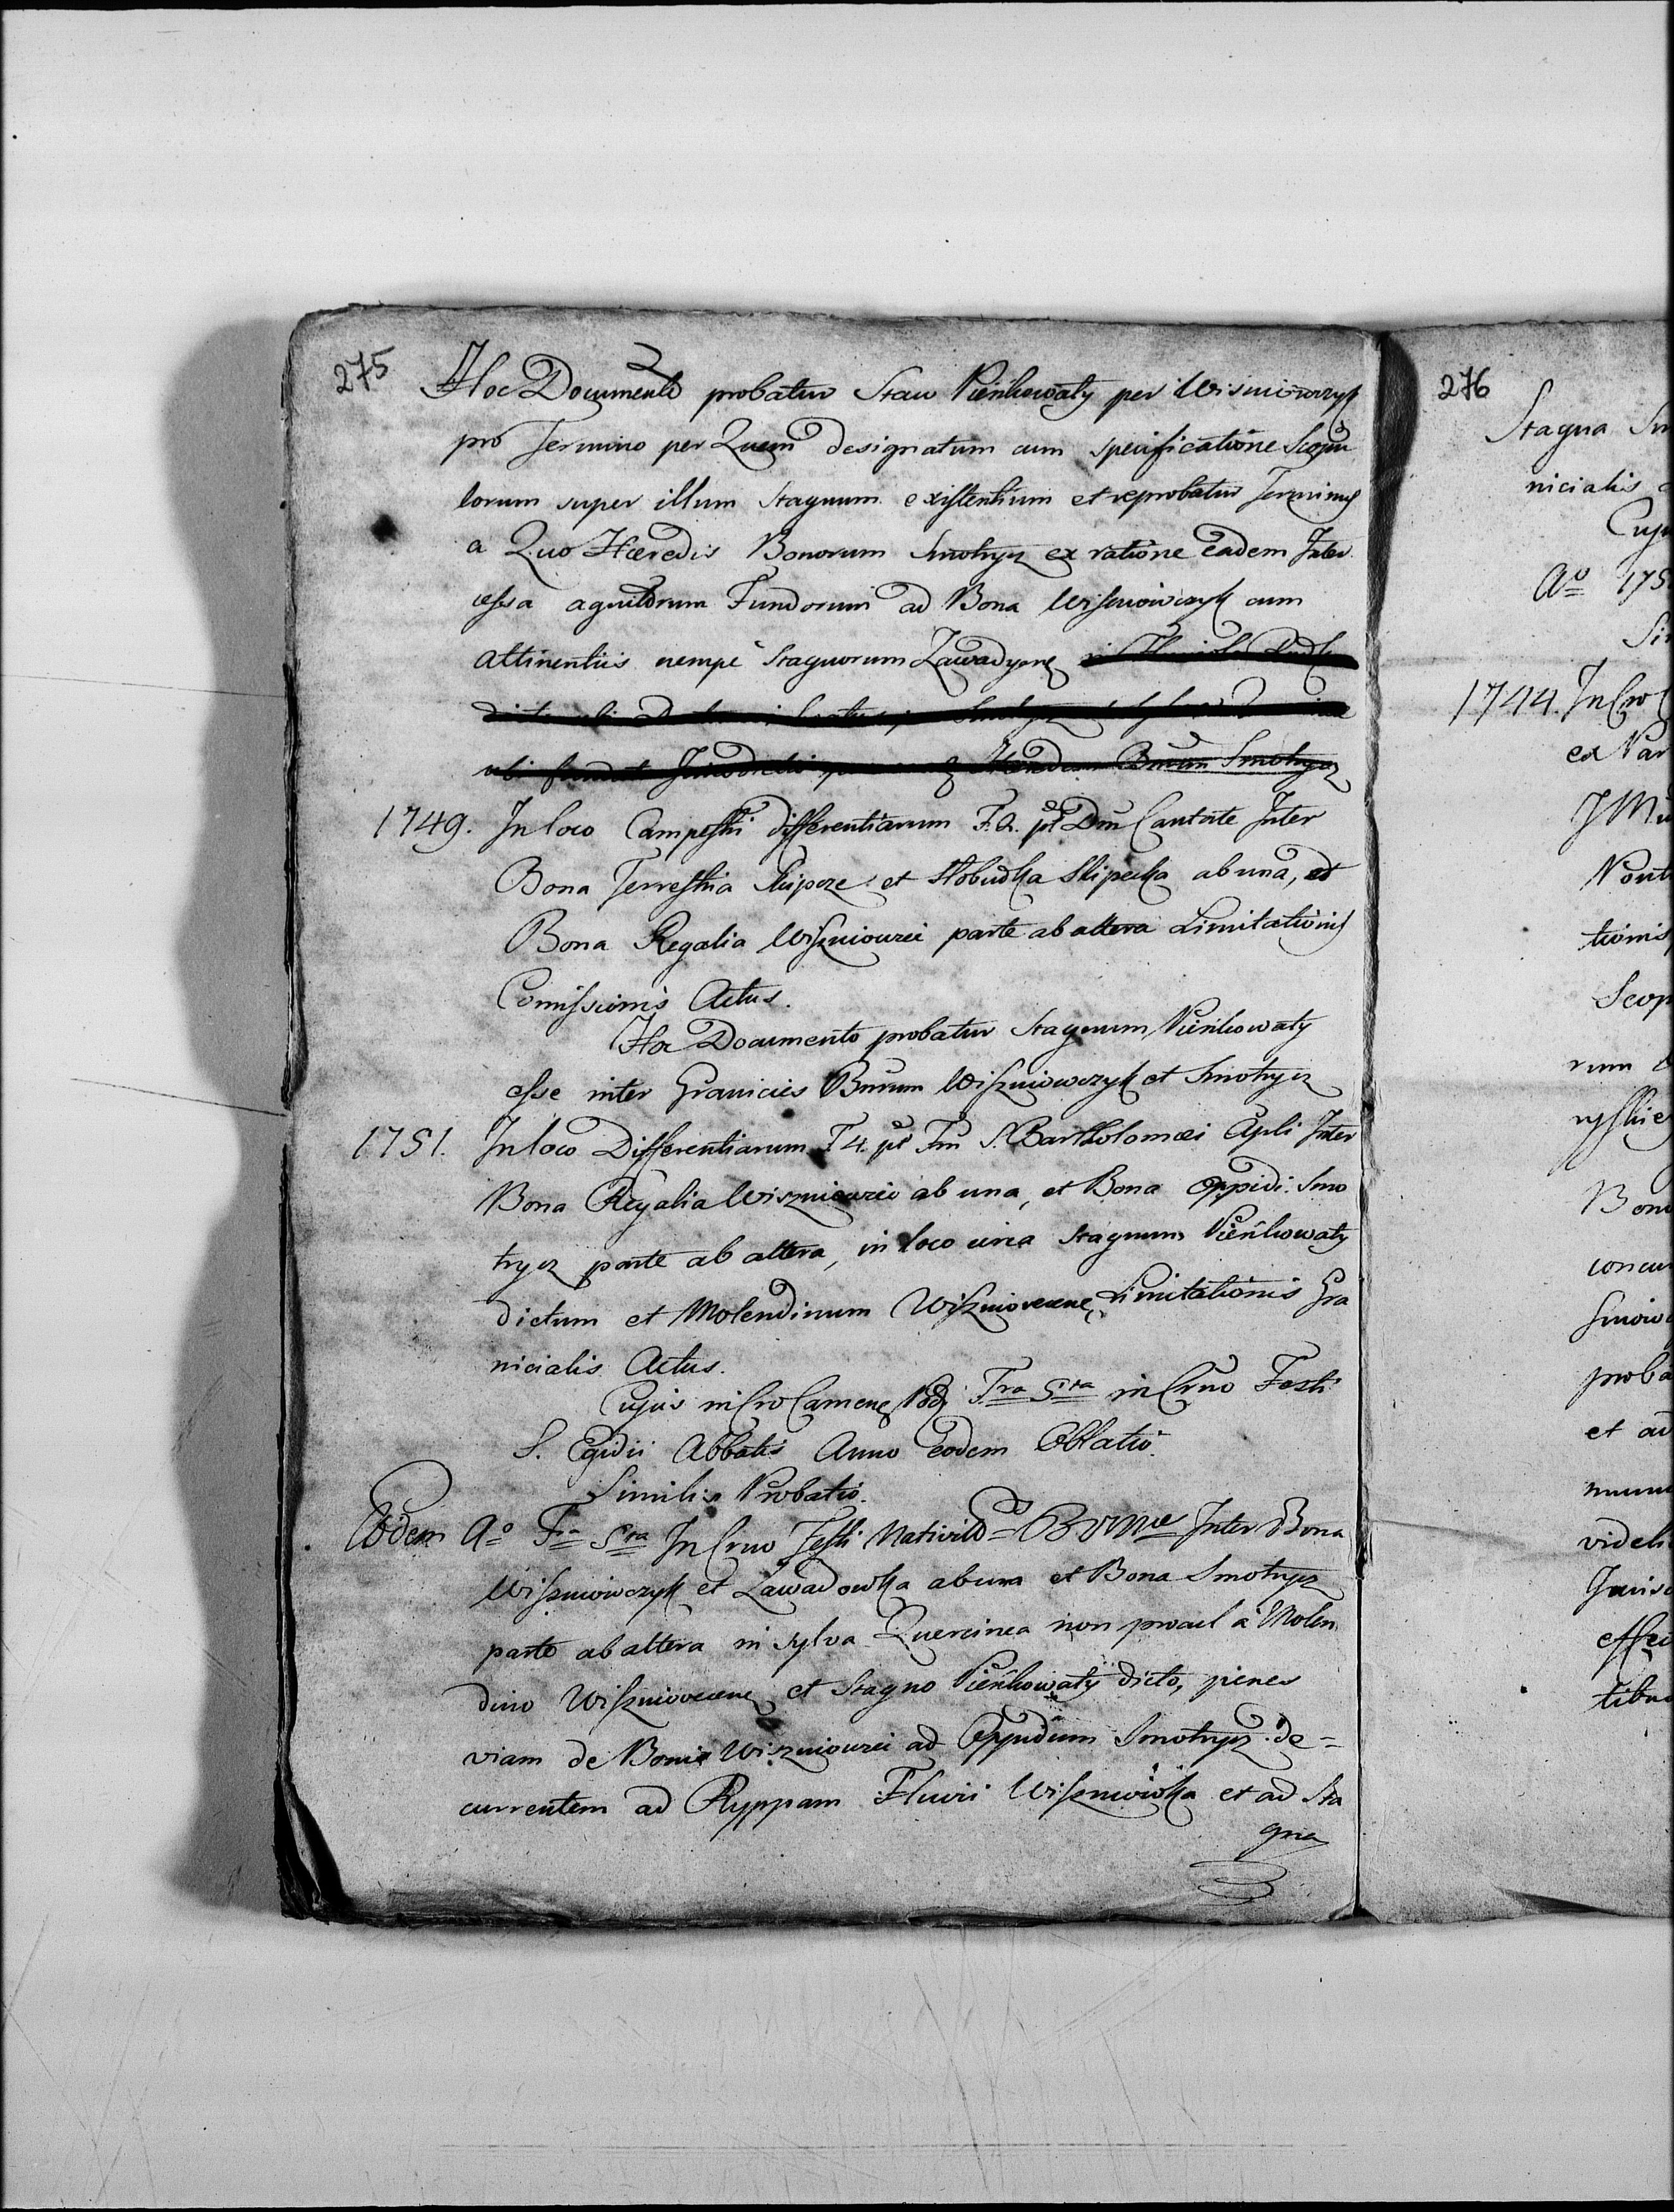 275
Hoc Documento probatur Staw Pieńkowaty per Wisniowczyk
pro Termino per Quem designatum cum specificatione Scopu
lorum super illum Stagnum existentium et reprobatur Terminus
a Quo Hæredis Bonorum Smotrycz ex ratione eadem Inter
essa aquillorum Fundorum ad Bona Wiszniowczyk cum
attinentiis nempe Stagnorum Zawadyene
ubi Hæredem Bnrum Smotrycz
1749. In loco Campestri differentiarum F. 2. pt Dm Cantate Inter
Bona Terrestria Skipcze et Slobudka Skipecka ab una, et
Bona Regalia Wiszniowzei parte ab altera Limitationis
Comissionis Actus.
Hoc Documento probatur Stagnum Pieńkowaty
esse inter Granicies Bnrum Wiszniowczyk et Smotrycz
1751. In loco Differentiarum F 4. pt Fm S. Bartholomæi Apli Inter
Bona Regalia Wiszniowzei ab una, et Bona Oppidi Smo
trycz parte ab altera, in loco circa Stagnum Pieńkowaty
dictum et Molendinum Wiszniovecene, Limitationis Gra
nicialis Actus.
Cujus in Cro Camene Pod. Fra Sta in Crno Festi
S. Egidii Abbatis Anno eodem Oblatio.
Similis Probatio.
Eodem Ao Fa Sta In Crno Festi Nativittis BVMae Inter Bona
Wiszniowczyk et Zawadowka ab una et Bona Smotrycz
parte ab altera in sylva Quercinea non procul à Molen
dino Wiszniovecene et Stagno Pieńkowaty dicto, penes
viam de Bonis Wiszniowzei ad Oppidum Smotrycz de=
currentem ad Ryppam Fluvii Wiszniowka et ad Sta
gna
276
Stagna
nicialis
Ao 175
1744. In Cro
ex
tionis
Scop
rum
Bon
proba
et ad
tibus